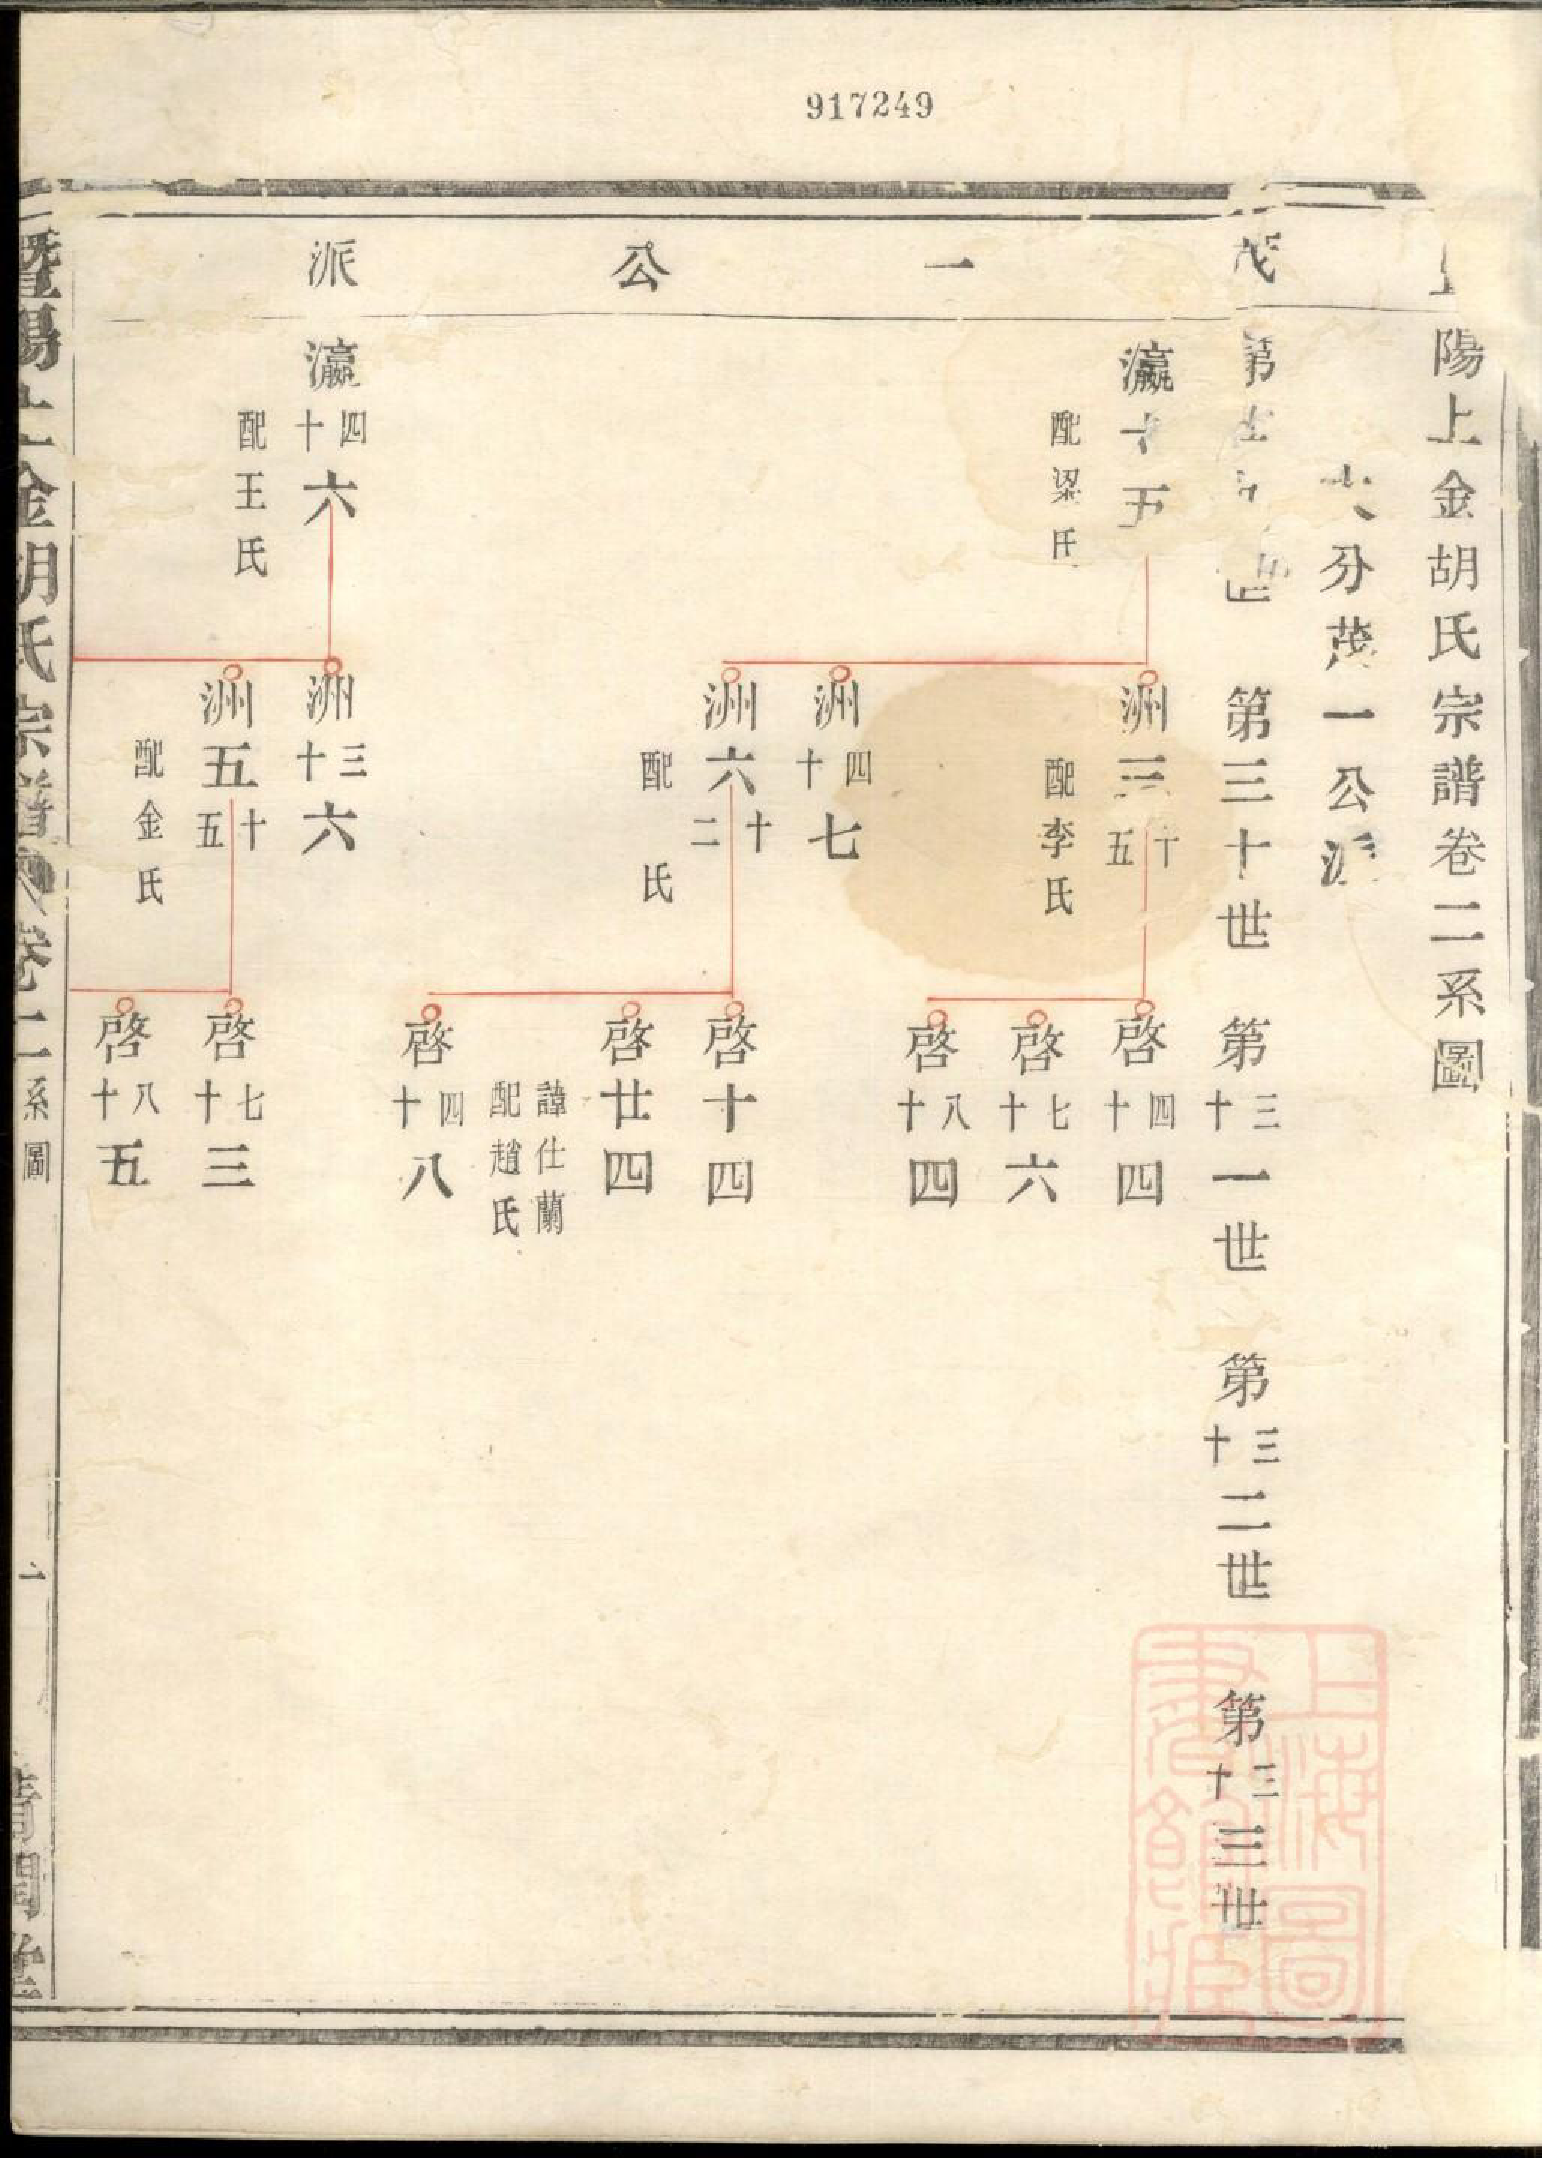 917249
陽上金胡氏宗譜卷二系圖
分茂一公派
茂一公派
第
第三十世
第三十一世
第三十二世
第三十三世
瀛十五
配梁氏
洲三十五
配李氏
啓四十四
啓七十六
啓八十四
洲四十七
洲六十二
配 氏
啓十四
啓廿四
諱仕蘭
配趙氏
啓四十八
瀛四十六
配王氏
洲三十六
洲五十五
配金氏
啓七十三
啓八十五
暨陽上金胡氏宗譜 卷二系圖 一
上海圖書館藏